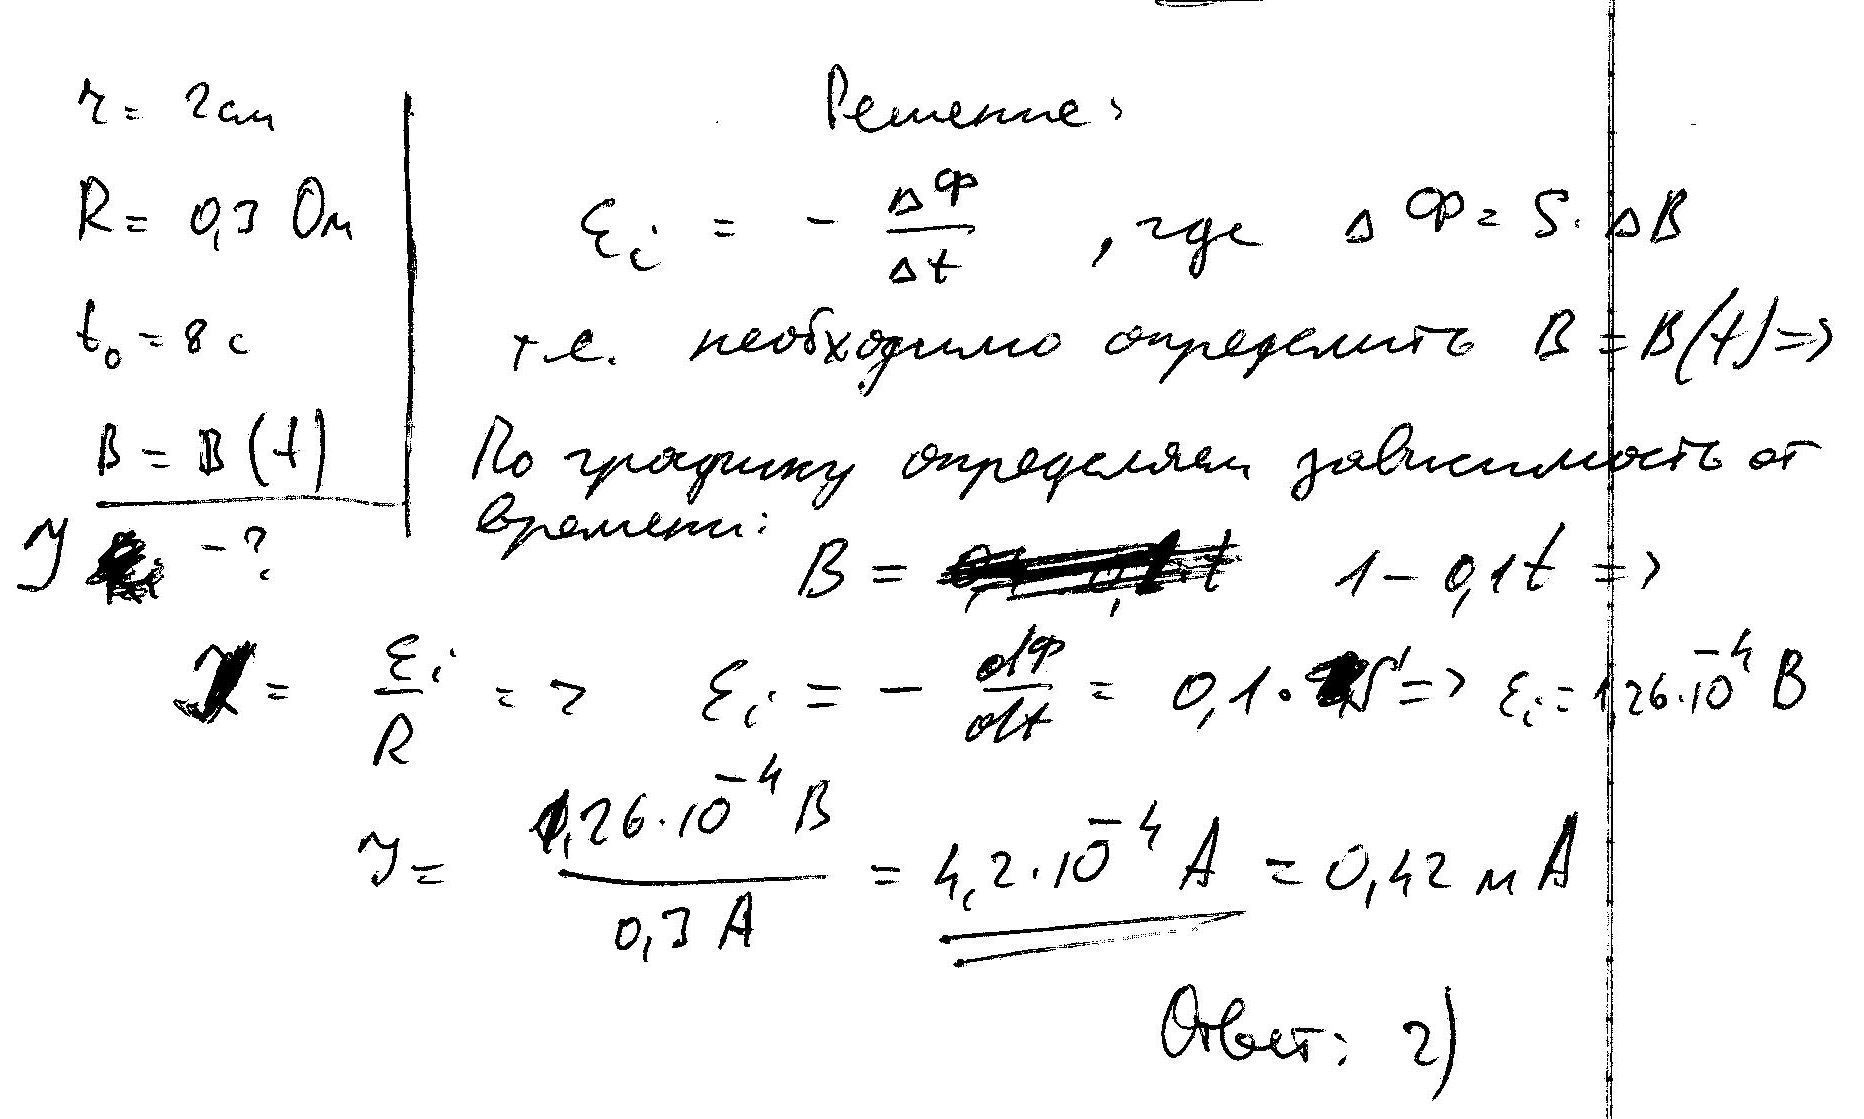 r = 2 см
R = 0,3 Ом
t₀ = 8 с
B = B(t)
J - ?
Решение:
εi = - ΔФ/Δt , где ΔФ = S · ΔB
т.е. необходимо определить B = B(t) =>
По графику определяем зависимость от
времени:
B = 1 - 0,1t =>
J = εi/R => εi = - dФ/dt = 0,1 · S => εi = 1,26·10⁻⁴ В
J = 1,26·10⁻⁴ В / 0,3 А = 4,2·10⁻⁴ А = 0,42 мА
Ответ: 2)